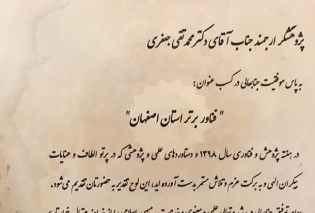 پژوهشگر ارجمند جناب آقای دکتر محمد تقی جعفری
به پاس موفقیت جنابعالی در کسب عنوان :
" فناور برتر استان اصفهان"
در هفته پژوهش و فناوری سال ۱۳۹۸ و دستاوردهای علمی و پژوهشی که در پرتو الطاف و عنایات
بیکران الهی و به برکت عزم و تلاش مستمر بدست آورده اید، این لوح تقدیر به حضورتان تقدیم می شود.